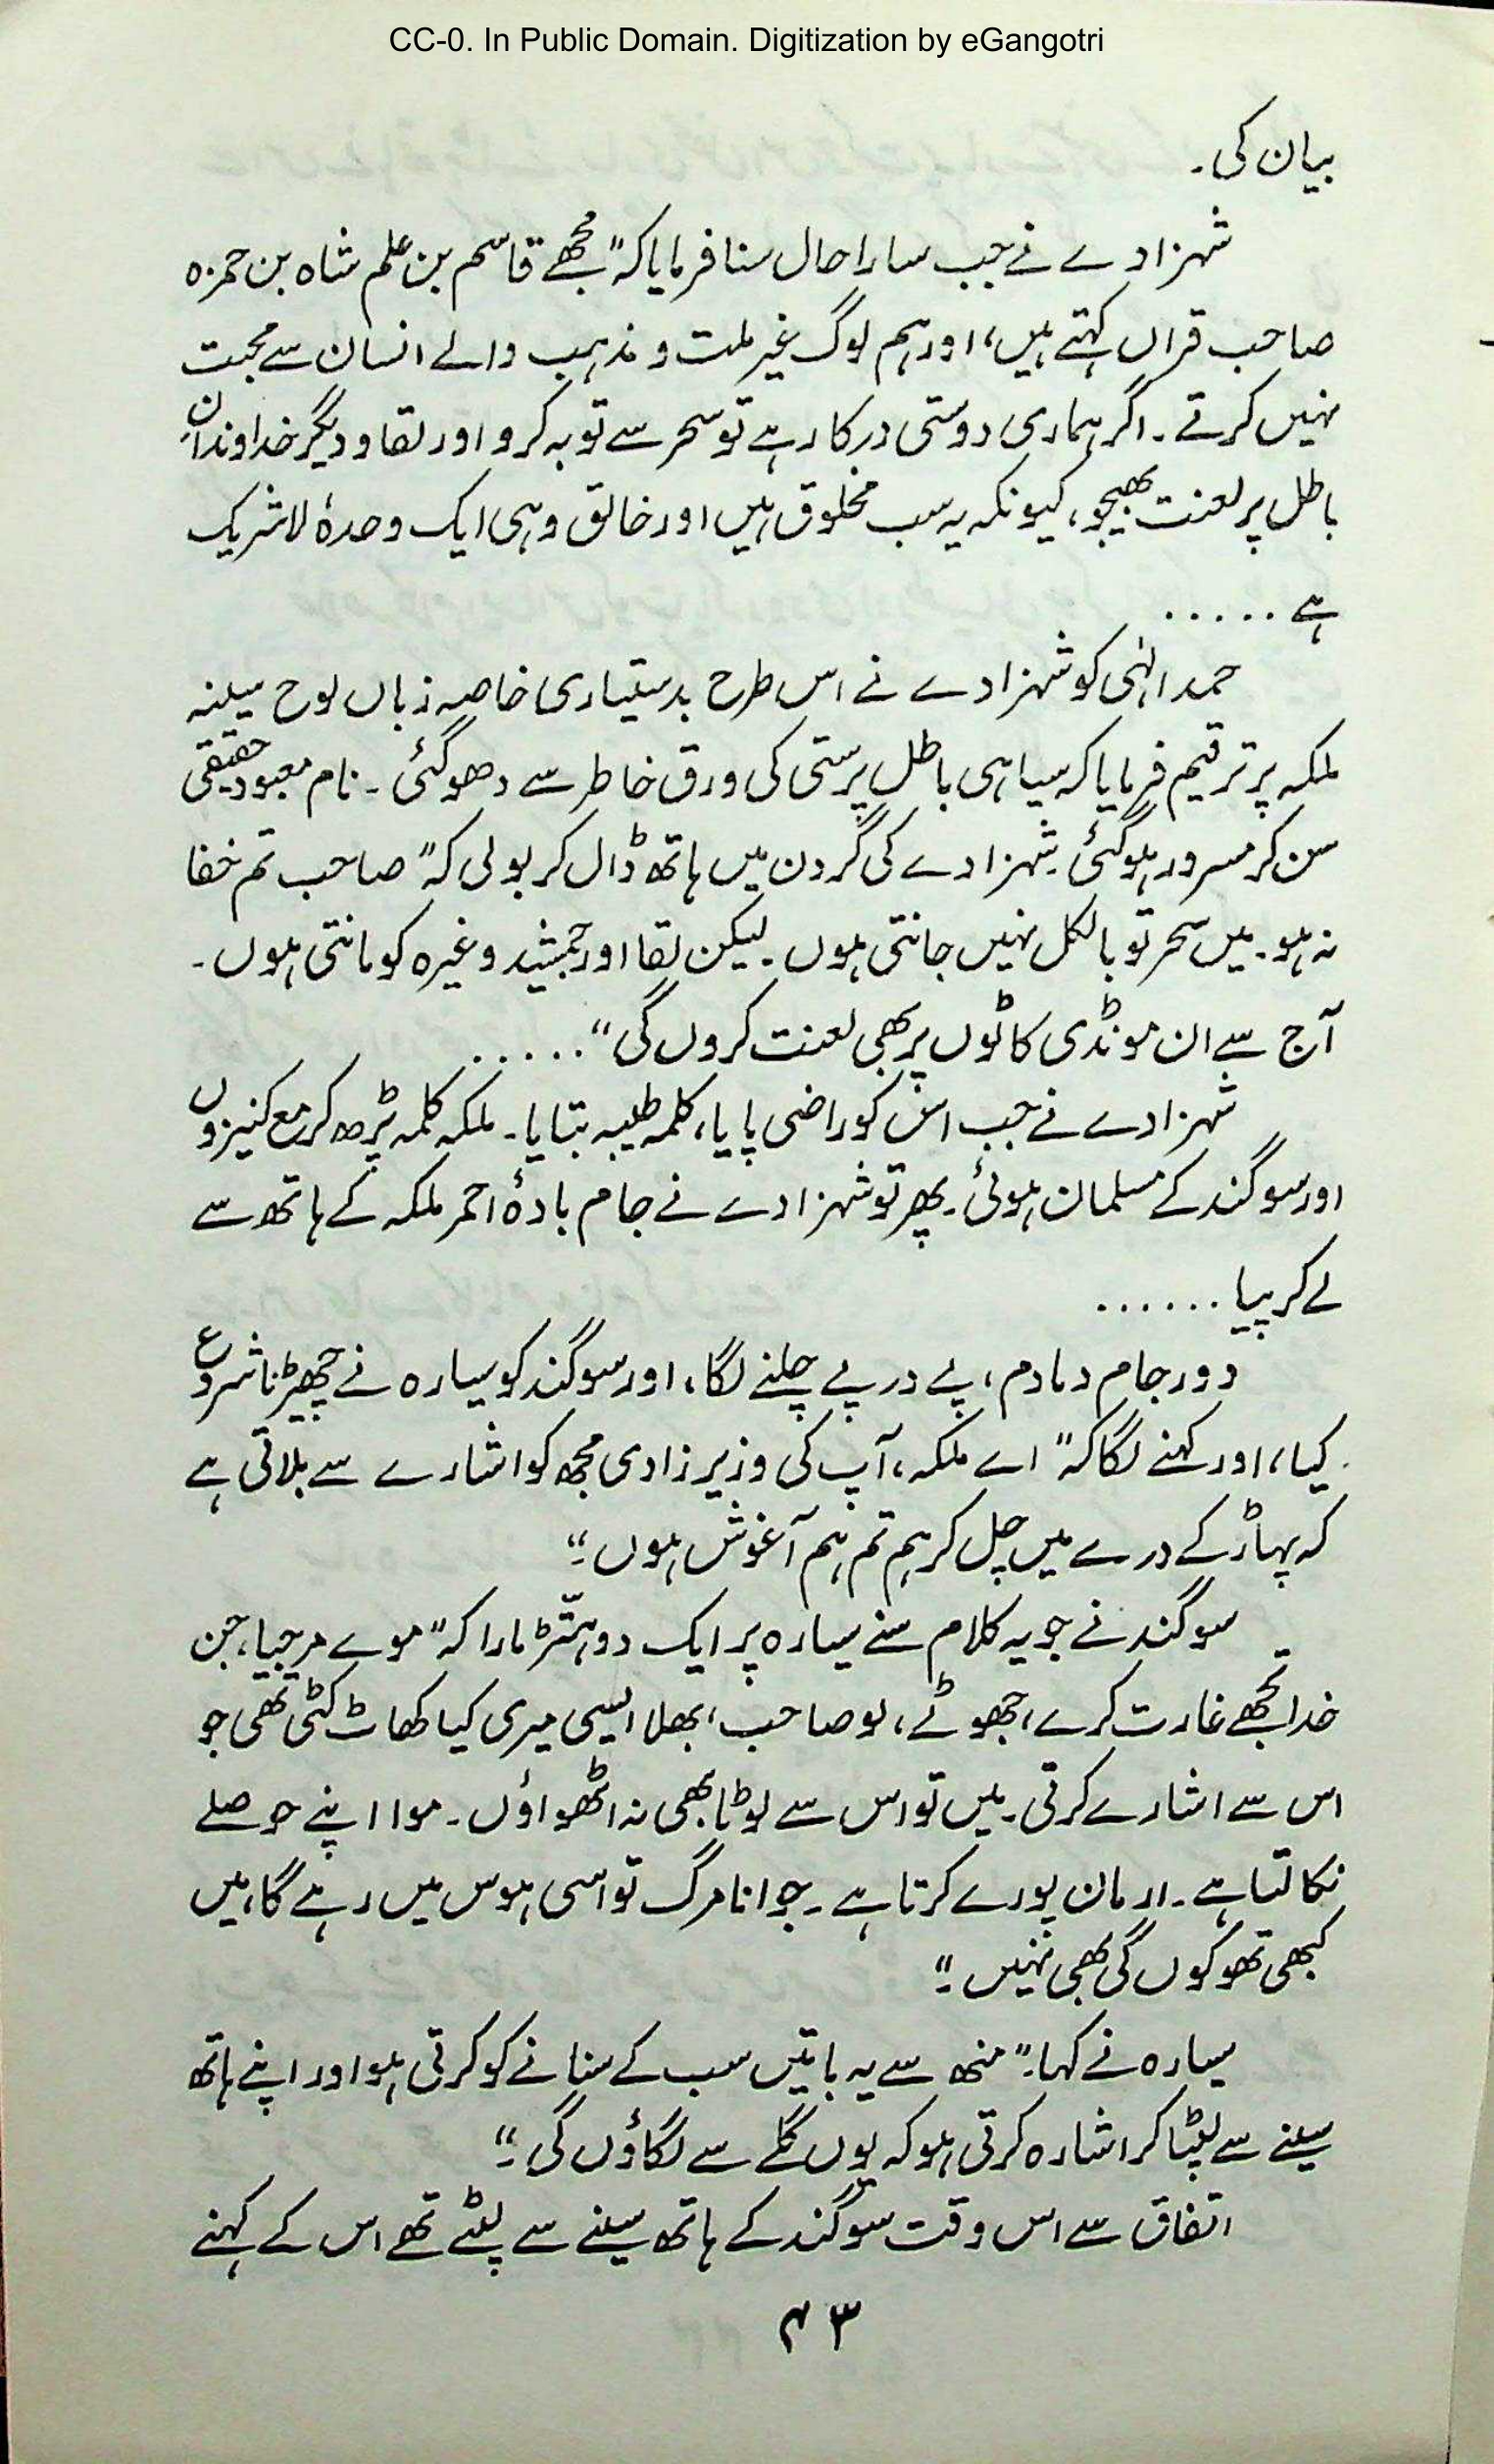 CC-0. In Public Domain. Digitization by eGangotri
بیان کی۔
شہزادے نے جب سارا حال سنا فرمایا کہ "مجھے قاسم بن علم شاہ بن حمزہ
صاحب قراں کہتے ہیں، اور ہم لوگ غیر ملت و مذہب والے انسان سے محبت
نہیں کرتے۔ اگر ہماری دوستی درکار ہے تو سحر سے توبہ کرو اور لقا و دیگر خداوندانِ
باطل پر لعنت بھیجو، کیونکہ یہ سب مخلوق ہیں اور خالق وہی ایک وحدہٗ لاشریک
ہے .....
حمد الٰہی کو شہزادے نے اس طرح بدستیاری خامہ زباں لوح سینہ
ملکہ پر ترقیم فرمایا کہ سیاہی باطل پرستی کی ورق خاطر سے دھو گئی۔ نام معبود حقیقی
سن کر مسرور ہو گئی۔ شہزادے کی گردن میں ہاتھ ڈال کر بولی کہ "صاحب تم خفا
نہ ہو۔ میں سحر تو بالکل نہیں جانتی ہوں۔ لیکن لقا اور جمشید وغیرہ کو مانتی ہوں۔
آج سے ان مونڈی کاٹوں پر بھی لعنت کروں گی" .....
شہزادے نے جب اس کو راضی پایا، کلمہ طیبہ بتایا۔ ملکہ کلمہ پڑھ کر مع کنیزوں
اور سوگند کے مسلمان ہوئی۔ پھر تو شہزادے نے جام بادۂ احمر ملکہ کے ہاتھ سے
لے کر پیا ......
دور جام دمادم، پے در پے چلنے لگا، اور سوگند کو سیارہ نے چھیڑنا شروع
کیا، اور کہنے لگا کہ "اے ملکہ، آپ کی وزیر زادی مجھ کو اشارے سے بلاتی ہے
کہ پہاڑ کے درے میں چل کر ہم تم ہم آغوش ہوں۔"
سوگند نے جو یہ کلام سنے سیارہ پر ایک دوہتّڑ مارا کہ "موے مرچیا، جن
خدا تجھے غارت کرے، جھوٹے، لو صاحب، بھلا ایسی میری کیا کھاٹ کٹی تھی جو
اس سے اشارے کرتی۔ میں تو اس سے لوٹا بھی نہ اٹھواؤں۔ موا اپنے حوصلے
نکالتا ہے۔ ارمان پورے کرتا ہے۔ جوانا مرگ تو اسی ہوس میں رہے گا، میں
کبھی تھوکوں گی بھی نہیں۔"
سیارہ نے کہا۔ "منھ سے یہ باتیں سب کے سنانے کو کرتی ہو اور اپنے ہاتھ
سینے سے لپٹا کر اشارہ کرتی ہو کہ یوں گلے سے لگاؤں گی۔"
اتفاق سے اس وقت سوگند کے ہاتھ سینے سے لپٹے تھے اس کے کہنے
۴۳